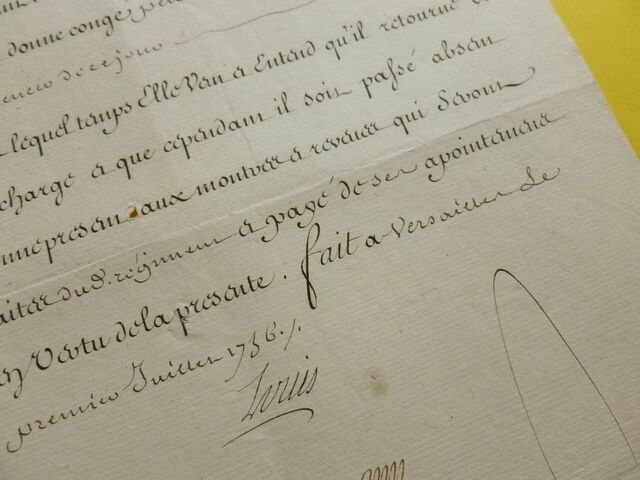 donne congé
de ce jour
lequel temps Elle Veu a Entend qu'il retourne
charge a que cependam il soin passé absem
comme presem aux montres a reveues qui Seront
faites dud. regimem a payé de ses apointemens
en Vertu de la presente. fait a Versailles le
premier Juillet 1736 ./.
Louis